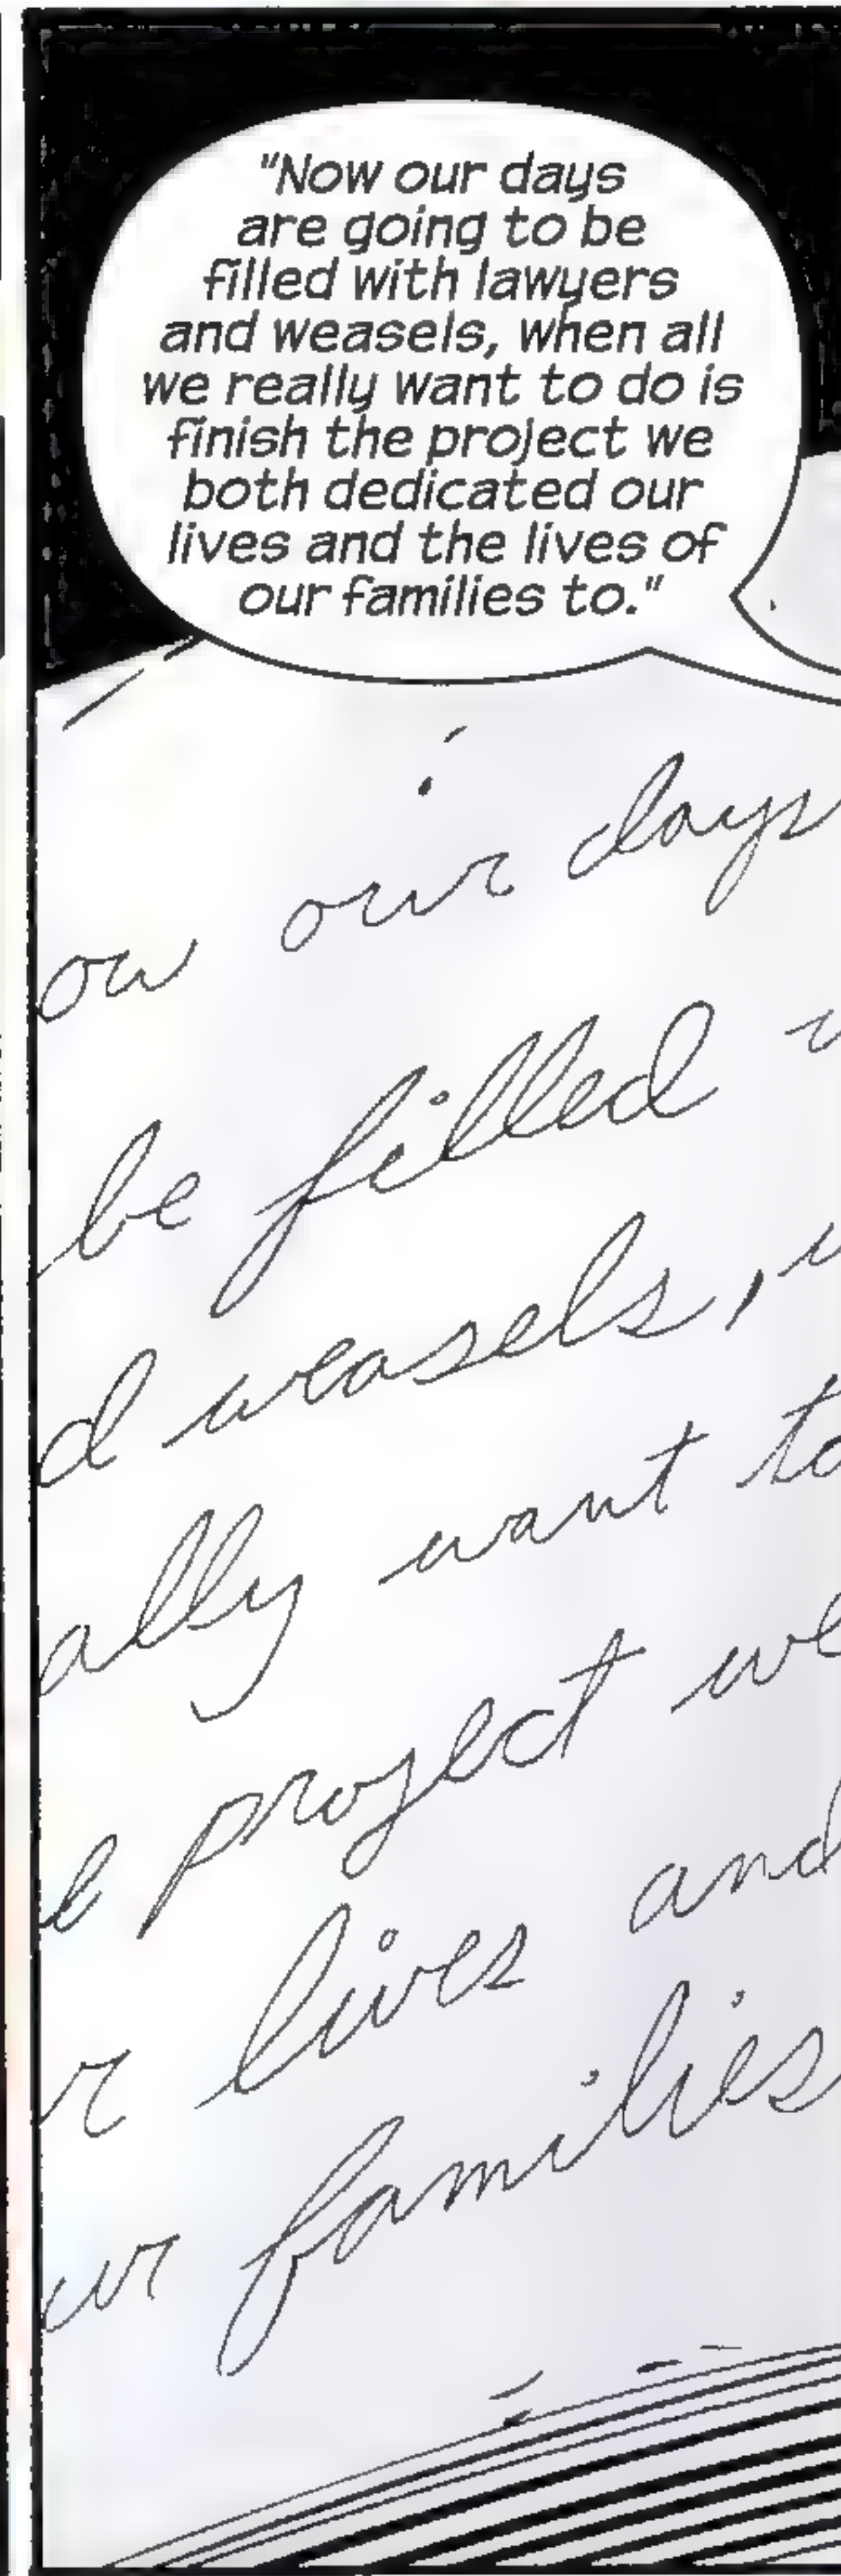 "Now our days
are going to be
filled with lawyers
and weasels, when all
we really want to do is
finish the project we
both dedicated our
lives and the lives of
our families to."
ow our days
be filled
d weasels,
ally want to
e project we
r lives and
ur families